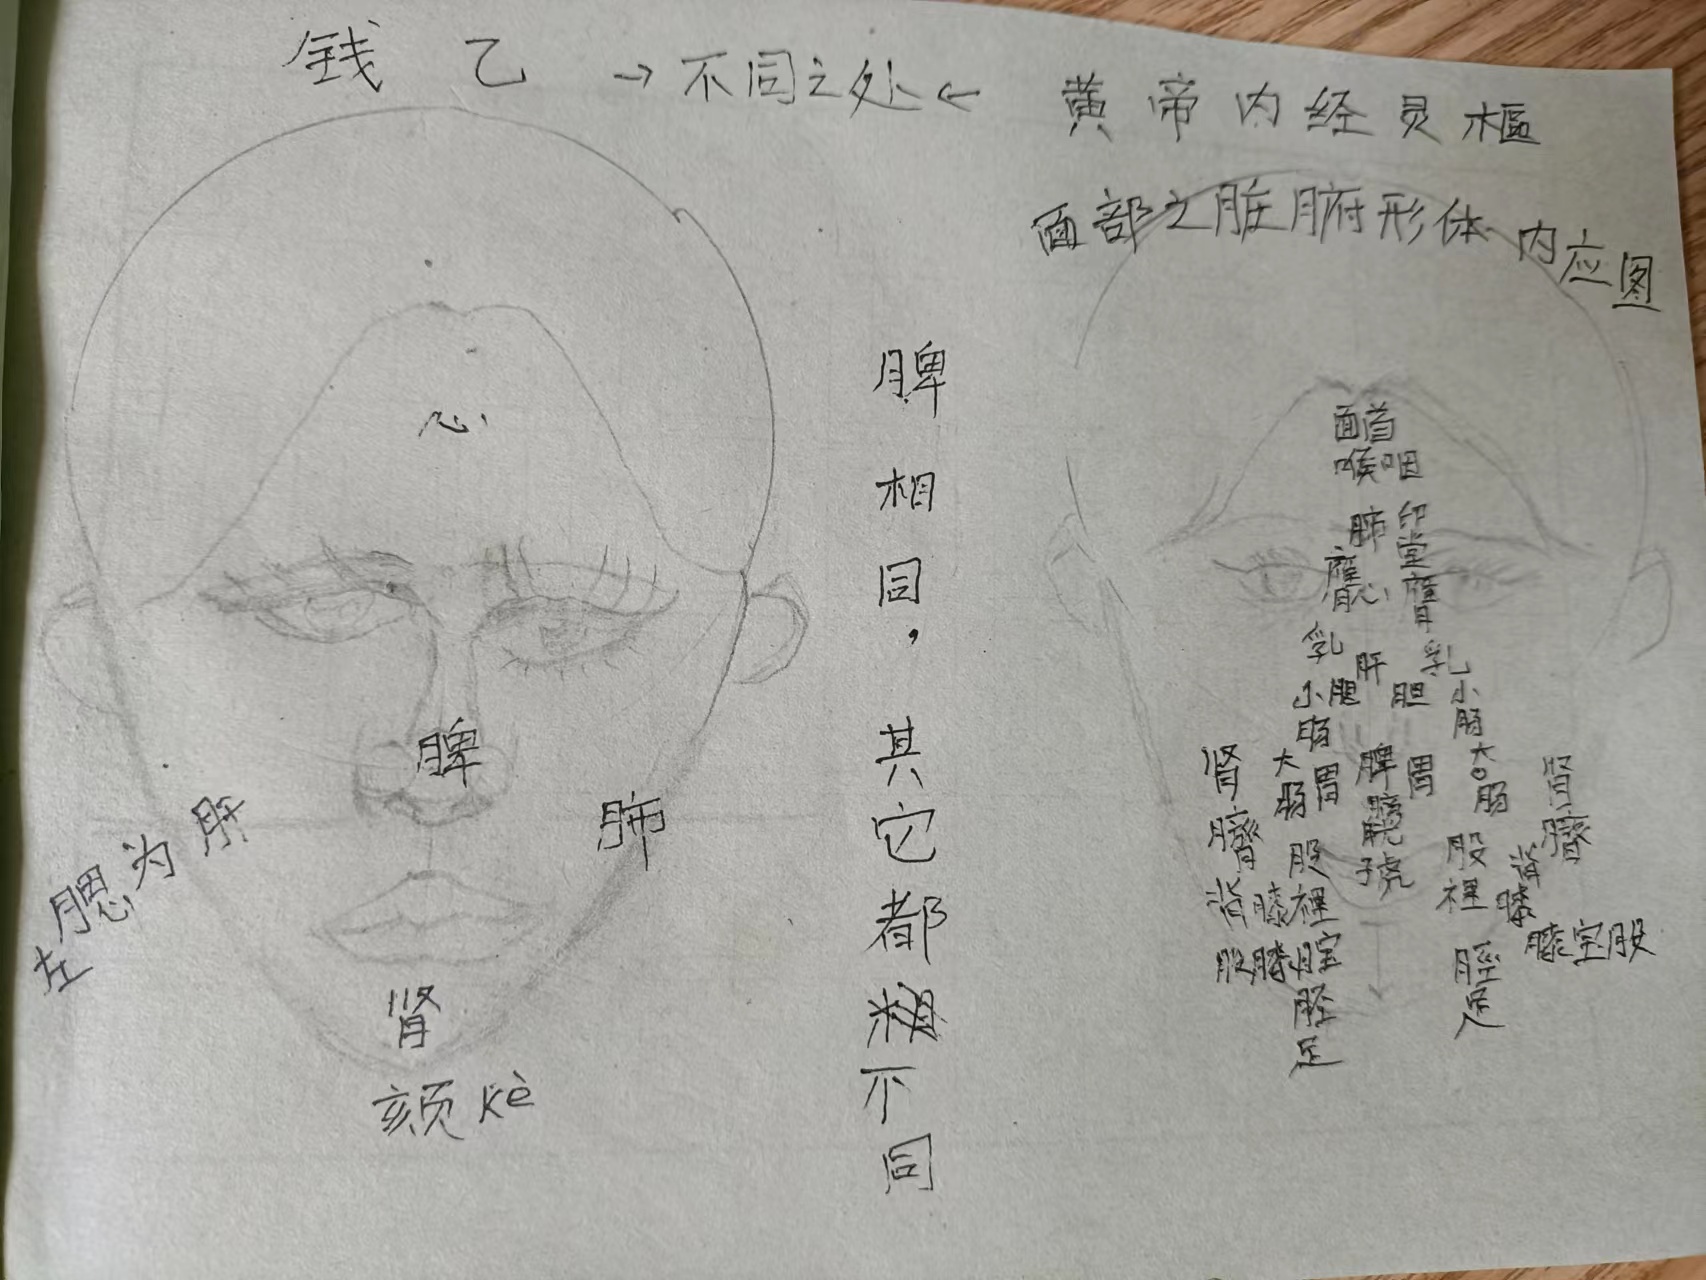 钱乙 → 不同之处 ← 黄帝内经灵枢
面部之脏腑形体内应图
心
脾
肺
左腮为肝
肾
颏 Kè
脾相同，其它都不同
面首
喉咽
肺 印堂
膺 心 膺
乳 肝 乳
小肠 胆 胆 小肠
肾 大肠 胃 脾 胃 大肠 肾
脐 股裡 膀 子 股裡 背 脐
背 膝 膝
股膝 胫 足
胫 足
股